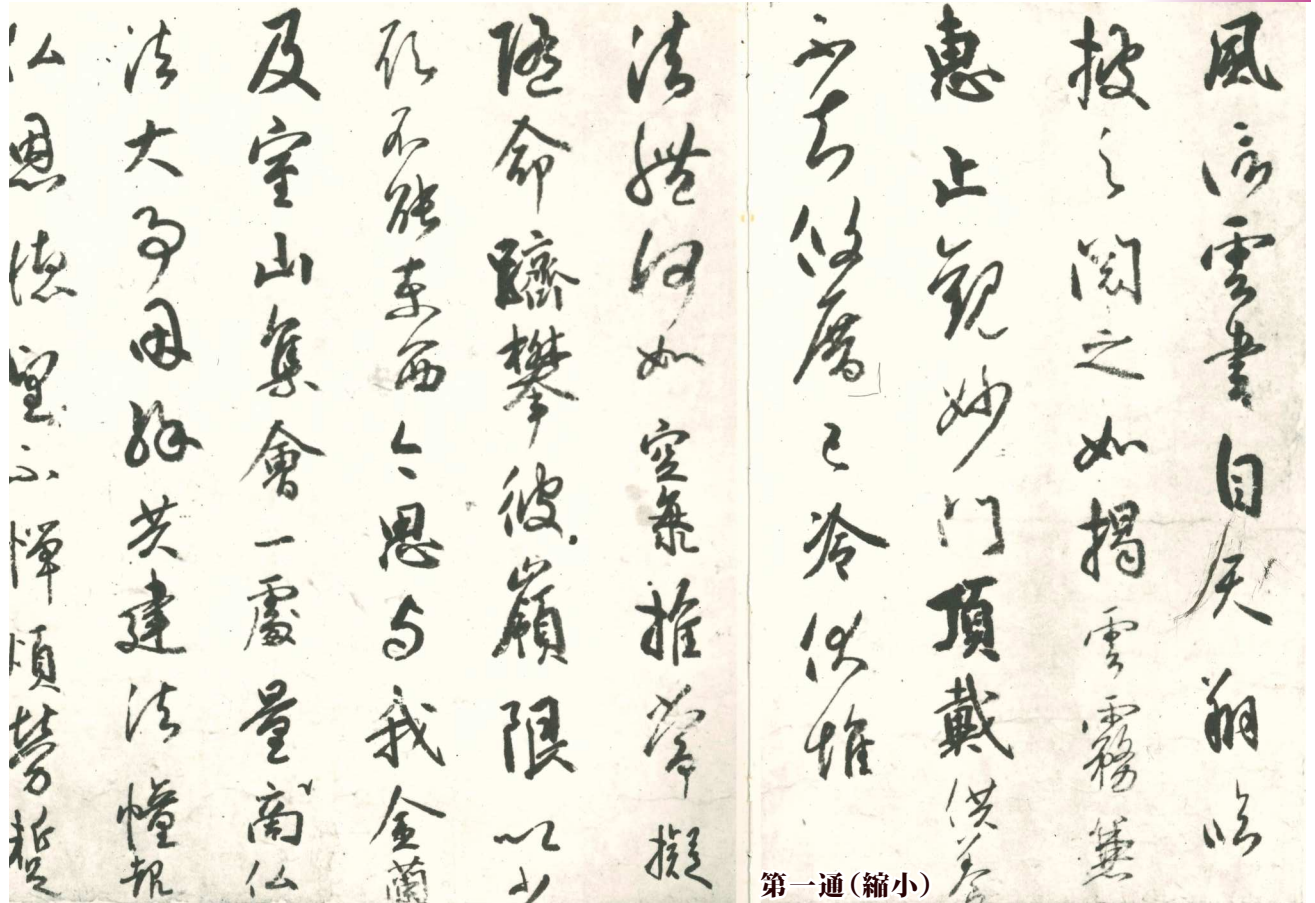 風信雲書自天翔臨
披之閲之如掲雲霧兼
恵止觀妙門頂戴供養
不知攸厝已冷伏惟
法體何如空海推常擬
隨命躋攀彼嶺限以少
願不能東西今思与我金蘭
及室山集會一處量商仏
法大事因縁共建法幢報
仏恩徳望不憚煩勞蹔
第一通(縮小)